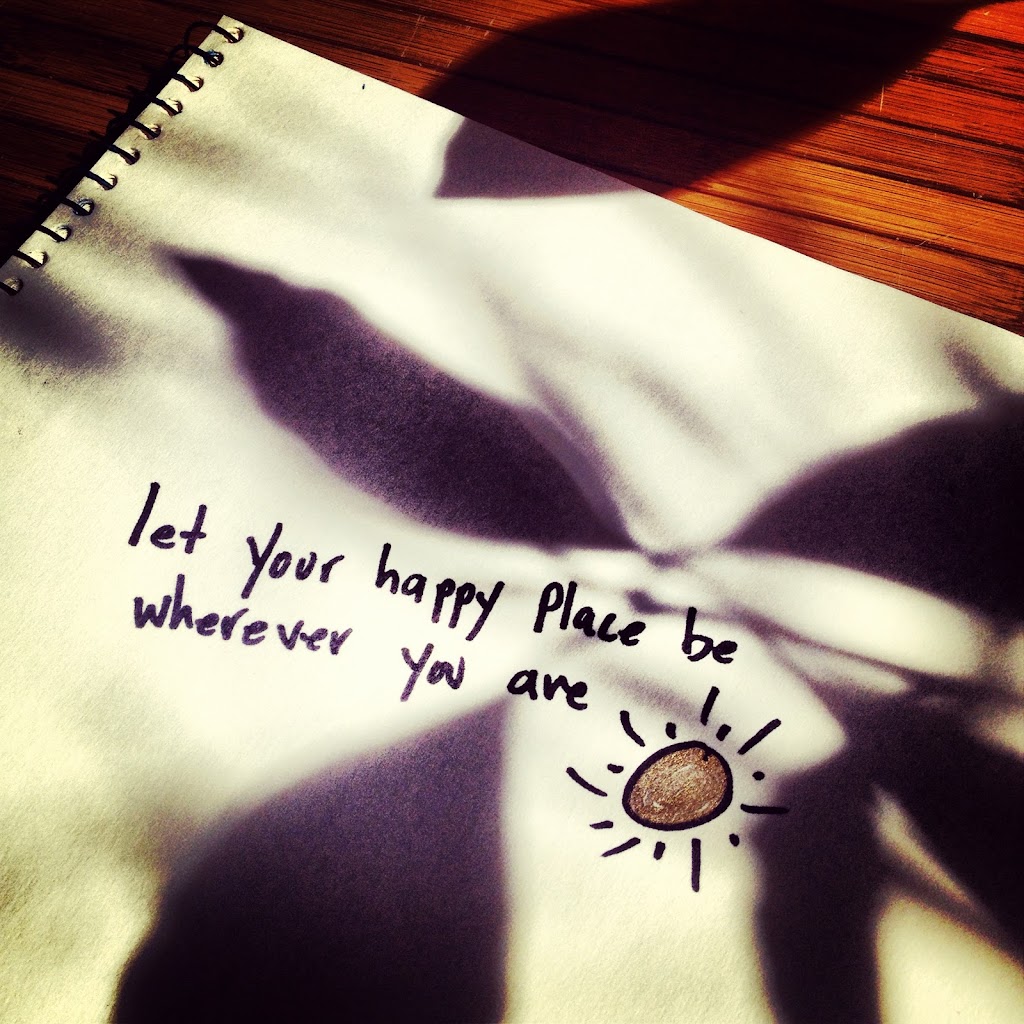 let your happy Place be
wherever you are